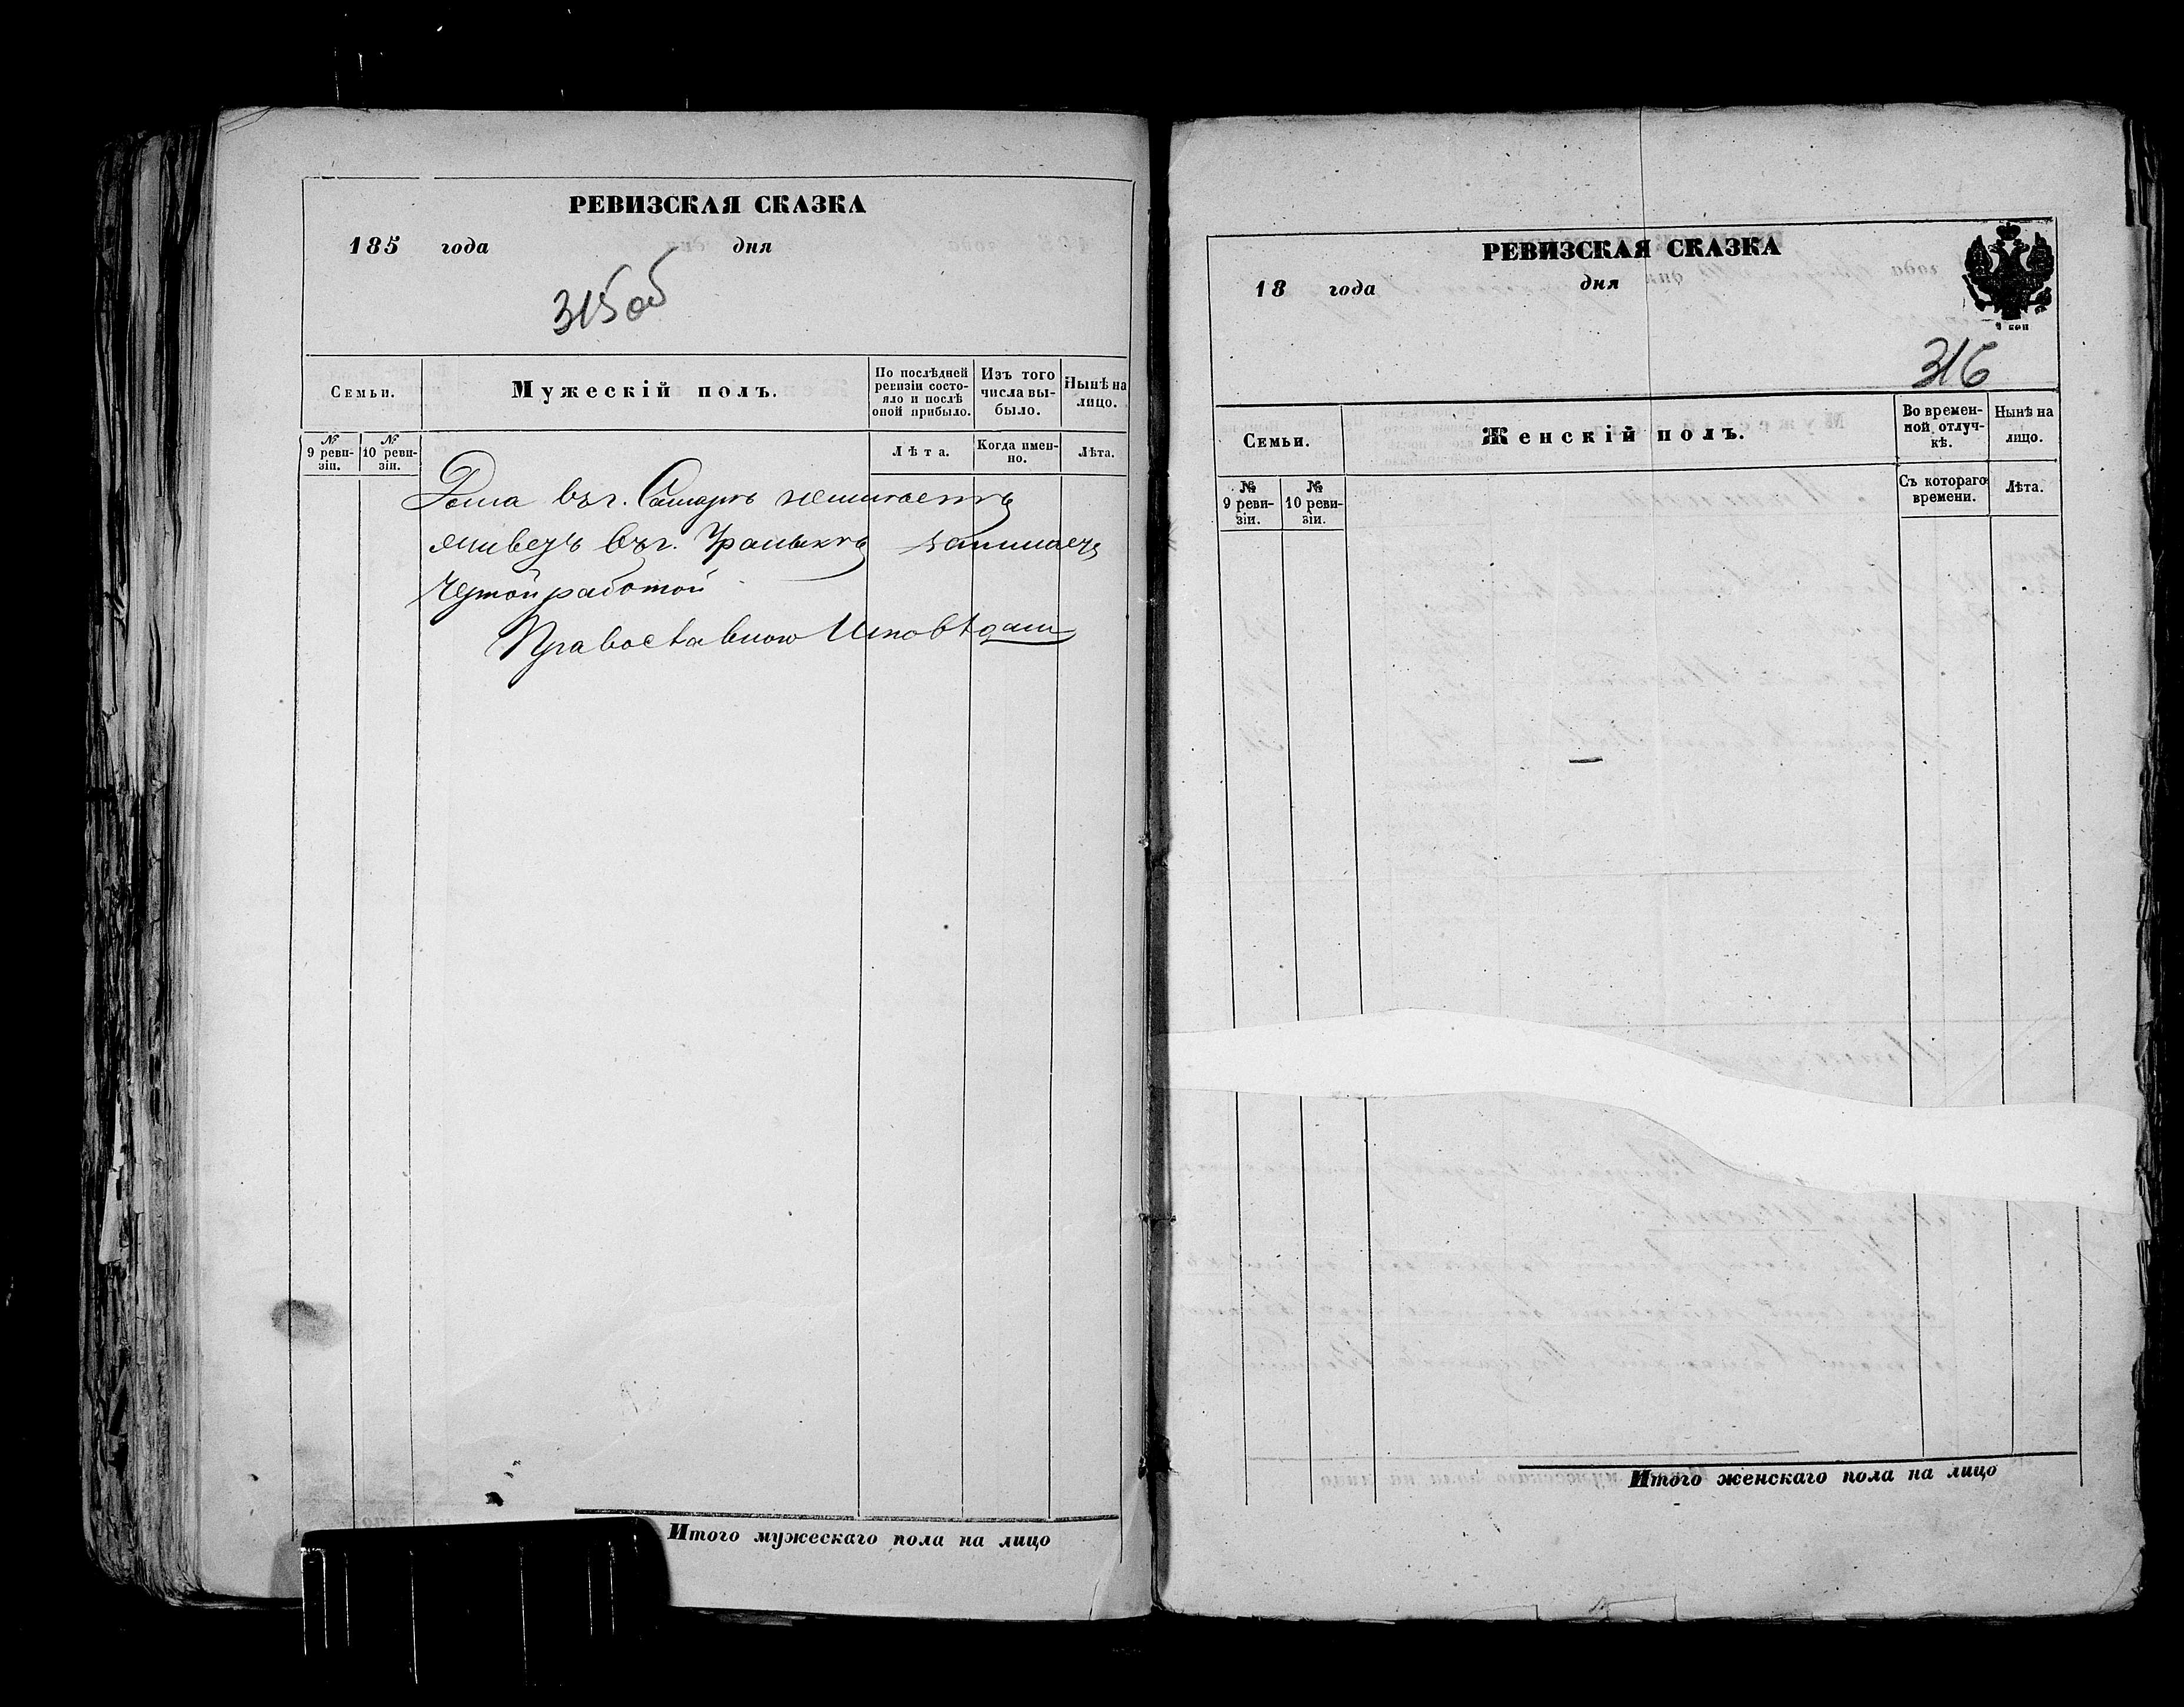 РЕВИЗСКАЯ СКАЗКА
185 года дня
315об
Семьи.
Мужескій полъ.
По послѣдней ревизіи состояло и послѣ оной прибыло.
Изъ того числа выбыло.
Нынѣ на лицо.
№ 9 ревизіи.
№ 10 ревизіи.
Лѣта.
Когда именно.
Лѣта.
Дома въ г. Самарѣ неимѣетъ
живетъ въ г.
работой
Православною Исповѣдани
Итого мужескаго пола на лицо
РЕВИЗСКАЯ СКАЗКА
18 года дня
316
Семьи.
Женскій полъ.
Во временной отлучкѣ.
Нынѣ на лицо.
№ 9 ревизіи.
№ 10 ревизіи.
Съ котораго времени.
Лѣта.
Итого женскаго пола на лицо